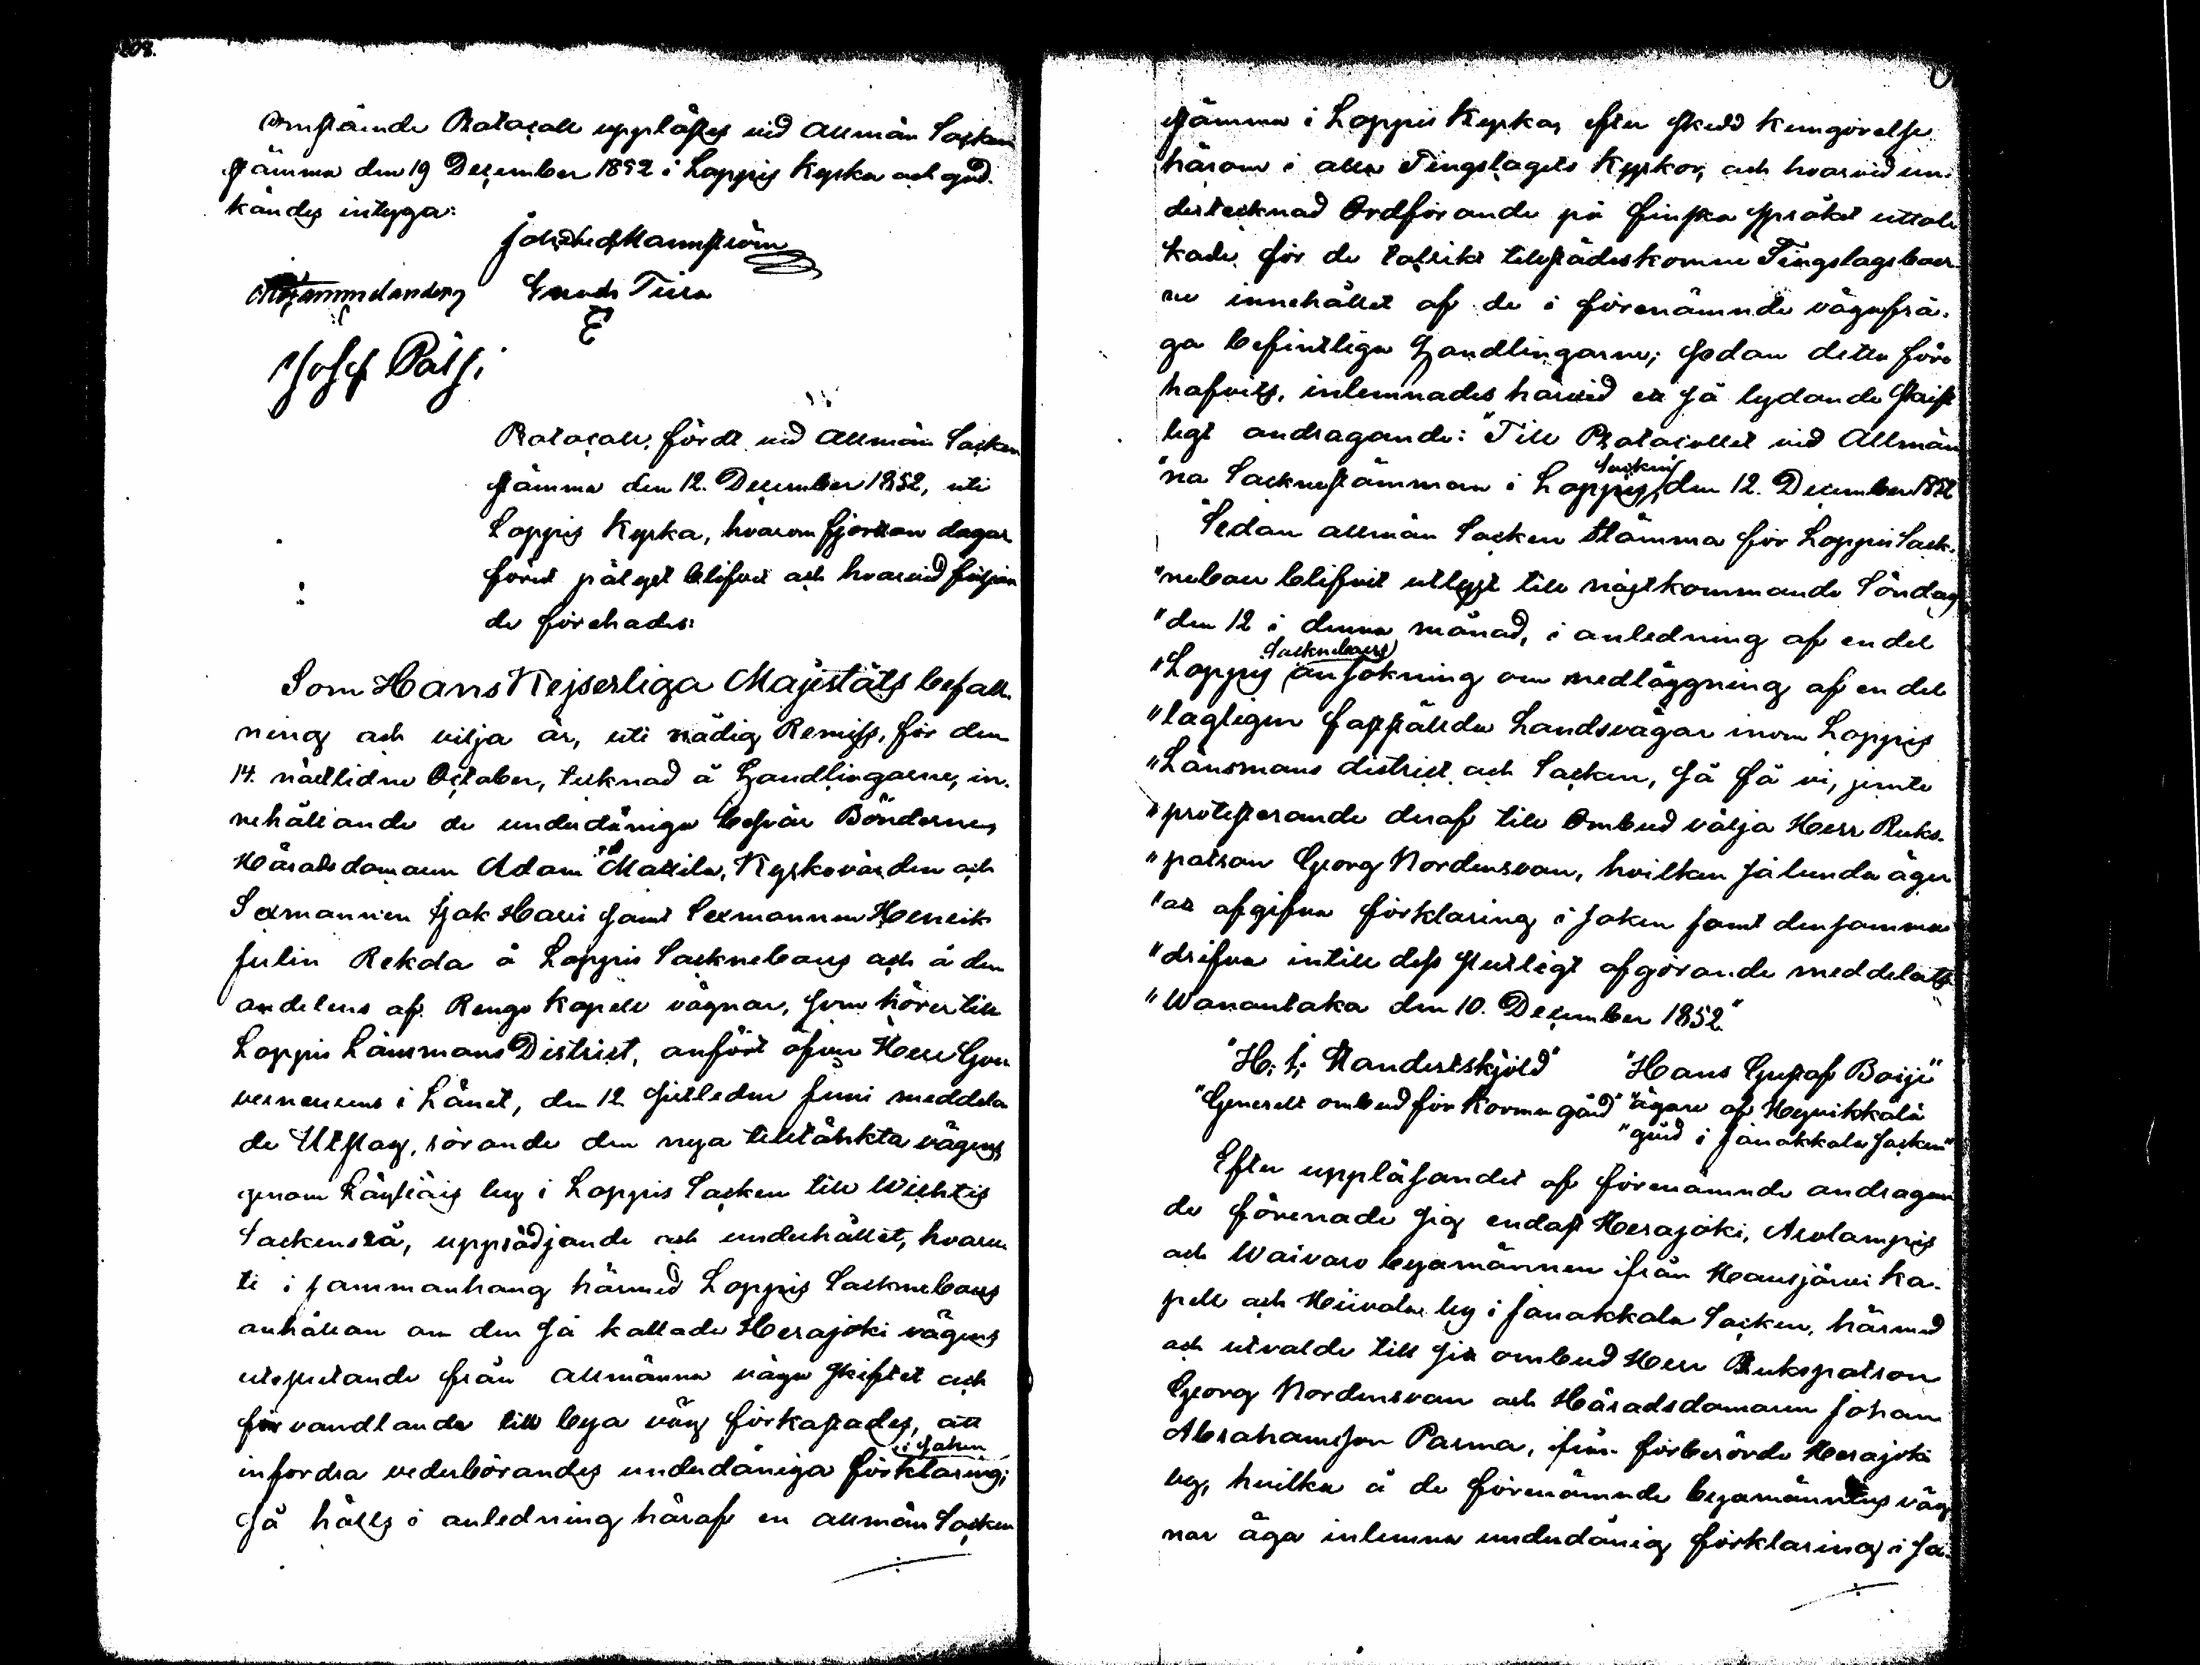 208.
Omstående Protocoll upplästes vid Allmän Socken
stämma den 19 December 1852 i Loppis Kyrka och god-
kändes intyga:
Joh: Mannström
Gustaf Tiira
Josef Pätsi
Protocoll, fördt vid Allmän Socken
stämma den 12. December 1852, uti
Loppis Kyrka, hvarom fjorton dagar
förut pålyst blifvit och hvarvid följan
de förehades:
Som Hans Kejserliga Majestäts befall-
ning och vilja är, uti nådig Remiss, för den
14. nästlidne October, tecknad å Handlingarne, in-
nehållande de underdåniga besvär Bönderne,
Häradsdomaren Adam Mattila, Kyrkovärden och
Sexmannen Isak Harri samt Sexmannen Henrik
Julin Rekola å Loppis Sockneboers och å den
andelens af Rengo Kapell vägnar, som hörer till
Loppis Länsmans District, anfört öfver Herr Gou
verneurens i Länet, den 12 sistledne Juni meddela
de Utslag, rörande den nya tilltänkta vägens
genom Läyliäis by i Loppis Socken till Wichtis
Sockenrå, upprödjande och underhållet, hvaru
ti i sammanhang härmed Loppis Socknebors
anhållan om den så kallade Herajoki vägens
uteslutande från allmänna väga skiftet och
förvandlande till bya väg förkastades, att
infordra vederbörandes underdåniga förklaring i saken;
Så hålls i anledning häraf en allmän Socken
stämma i Loppis Kyrka, efter skedd kungörelse
härom i alla Tingslagets Kyrkor, och hvarvid un-
dertecknad Ordförande på finska språket uttol
kade för de talrikt tillstädeskomne Tingslagsboer
ne innehållet af de i förenämnde vägafrå-
ga befintliga Handlingarne; sedan detta före
hafvits, inlemnades härvid ett så lydande skrift
ligt andragande: "Till Protocollet vid Allmän
"na Socknestämman i Loppis Socken, den 12. December 1852
"Sedan allmän Socken stämma för Loppis Sock-
"neboer blifvit utlyst till nästkommande Söndag
"den 12 i denna månad, i anledning af en del
"Loppis Socknebors ansökning om nedläggning af en del
"lagligen fastställda Landsvägar inom Loppis
"Länsmans district och Socken, så få vi, jemte
"protesterande deraf till Ombud välja Herr Bruks-
"patron Georg Nordensvan, hvilken sålunda äger
"att afgifva förklaring i saken samt densamma
"drifva intill dess slutligt afgörande meddelats
"Wanantaka den 10. December 1852."
"H. J. Standertskjöld" "Hans Gustaf Boije"
"Generelt ombud för Kormu gård" "ägare af Hyvikkälä
"gård i Janakkala Socken"
Efter uppläsandet af förenämnde andragan
de förenade sig endast Herajoki, Arolampis
och Waivaro byamännen ifrån Hausjärvi Ka-
pell och Hiivola by i Janakkala Socken, härmed
och utvalde till sitt ombud Herr Brukspatron
Georg Nordensvan och Häradsdomaren Johan
Abrahamsson Parma, ifrån förberörde Herajoki
by, hvilka å de förenämnde byamännens väg
nar äga inlemna underdånig förklaring i sa-